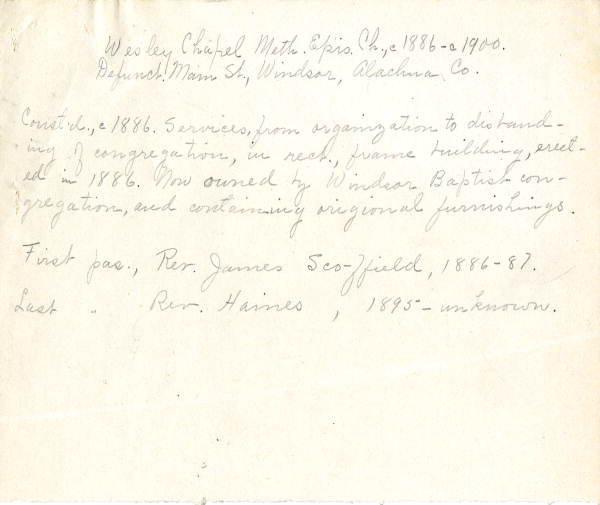 Wesley Chapel Meth. Epis. Ch., c 1886-c 1900.
Defunct. Main St., Windsor, Alachua Co.
Const'd., c 1886. Services, from organization to disband-
ing of congregation, in rect., frame building, erect-
ed in 1886. Now owned by Windsor Baptist con-
gregation, and containing origional furnishings.
First pas., Rev. James Scoffield, 1886-87.
Last " Rev. Haines, 1895-unknown.